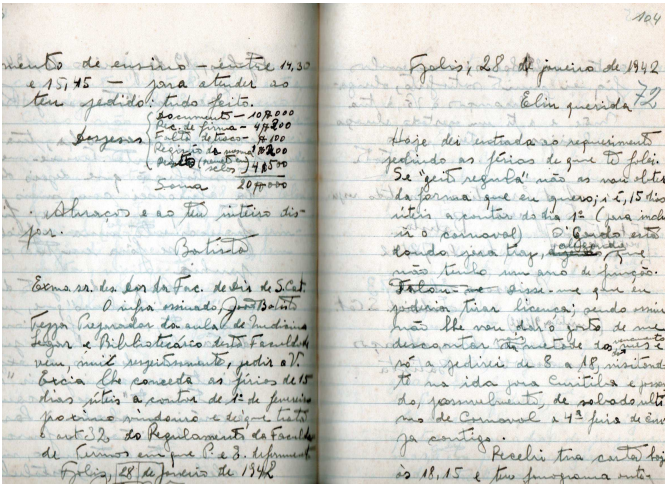 mento de ensino – entre 14,30
e 15,45 – para atender ao
teu pedido: tudo feito.
Despesas
Documento – 10$000
Rec. de firma – 4$200
Falta de troco – $100
Registro da mesma 1$200
selos) 4$500
Soma 20$000
. Abraços e ao teu inteiro dis-
por.
Batista
Exmo sr. des. Dor da Fac. de Dir. de S. Cat.
O infra assinado, João Batista
Preparador da aula de Medicina
Legar e Bibliotecário desta Faculdade
vem, mui respeitosamente, pedir a V.
Excia lhe conceda as férias de 15
dias úteis a contar de 1º de fevereiro
próximo vindouro e de que trata
o art. 32 do Regulamento da Faculda
de Termos em que P. e E. deferimento
Fpolis, 28 de janeiro de 1942
104
Fpolis, 28 de janeiro de 1942
72
Elin querida
Hoje dei entrada ao requerimento
pedindo as férias de que te falei.
Se "geit regula" não as vou obter
da forma que eu quero, i é, 15 dias
úteis a contar do dia 1º (para inclu
ir o carnaval) O está
dando para traz, alegando que
não tenho um ano de função.
Falou-me disse-me que eu
poderia tirar licença; sendo assim
não lhe vou dar o gosto de me
descontar metade do mês
só a pedirei de 8 a 18, visitando
te na ida para Curitiba e passan
do, possivelmente, de sabado ulti
mo de Carnaval a 4ª feira de cin
ja contigo.
Recebi tua carta hoje
às 18,15 e teu fonograma onte-